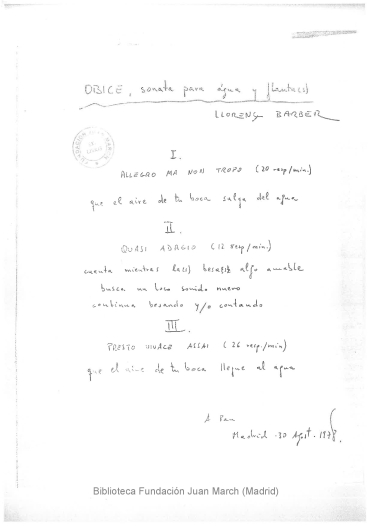 OBICE, sonata para água y flauta(s)
LLORENÇ BARBER
FUNDACIÓN JUAN MARCH
I.
ALLEGRO MA NON TROPO (20 resp/min.)
que el aire de tu boca salga del agua
II.
QUASI ADAGIO (12 resp/min.)
cuenta mientras la(s) besas algo amable
busca un loco sonido nuevo
continua besando y/o contando
III.
PRESTO VIVACE ASSAI (26 resp./min)
que el aire de tu boca llegue al agua
A
Madrid - 30 Agost. 1978.
Biblioteca Fundación Juan March (Madrid)